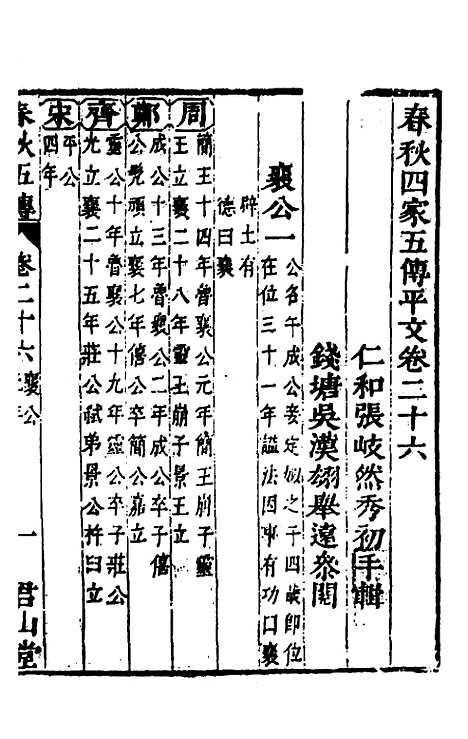 春秋四家五傳平文卷二十六
仁和張岐然秀初手輯
錢塘吳漢翊舉遠叅閱
襄公一
公名午成公妾定姒之子四歲即位
在位三十一年謚法因事有功曰襄
辟土有
德曰襄
周
簡王十四年魯襄公元年簡王崩子靈
王立襄二十八年靈王崩子景王立
鄭
成公十三年魯襄公二年成公卒子僖
公髡頑立襄七年僖公卒簡公嘉立
齊
靈公十年魯襄公十九年靈公卒子莊公
光立襄二十五年莊公弑弟景公杵臼立
宋
平公
四年
春秋五傳
卷二十六
襄公
一
君山堂